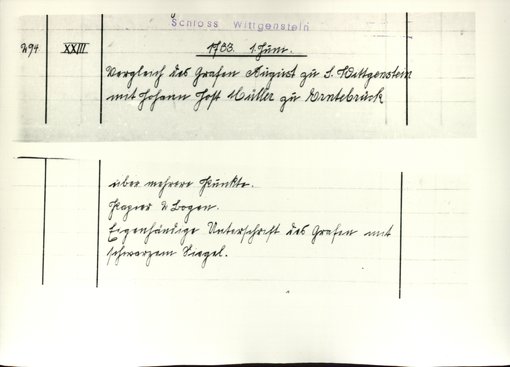 Schloss Wittgenstein
294 XXIII 1703. 1. Juni.
Vergleich des Grafen August zu S. Wittgenstein
mit Johann Jost Müller zu Erntebrück
über mehrere Punkte.
Papier 2 Bogen.
Eigenhändige Unterschrift des Grafen mit
schwarzem Siegel.